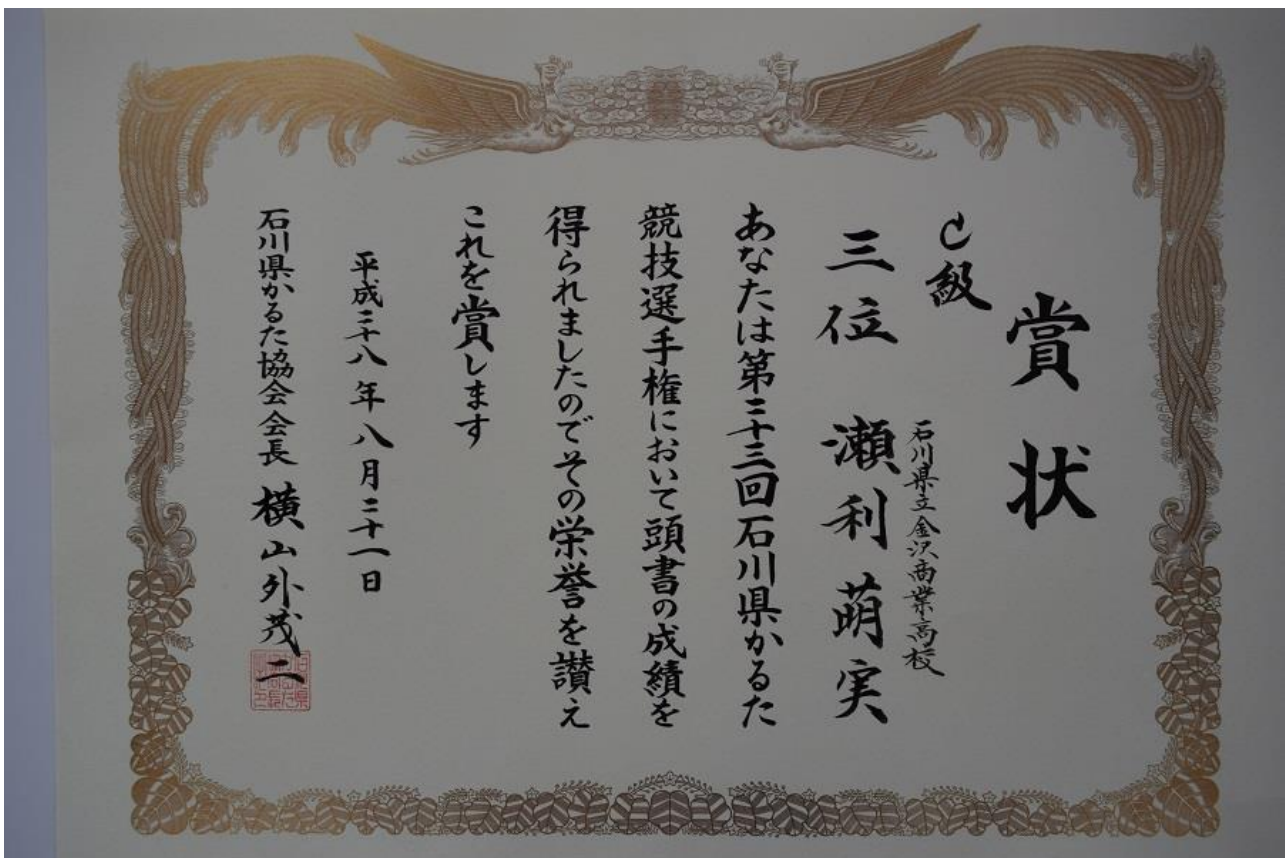 賞状
C級
石川県立金沢商業高校
三位 瀬利萌実
あなたは第三十三回石川県かるた
競技選手権において頭書の成績を
得られましたのでその栄誉を讃え
これを賞します
平成二十八年八月二十一日
石川県かるた協会会長 横山外茂二